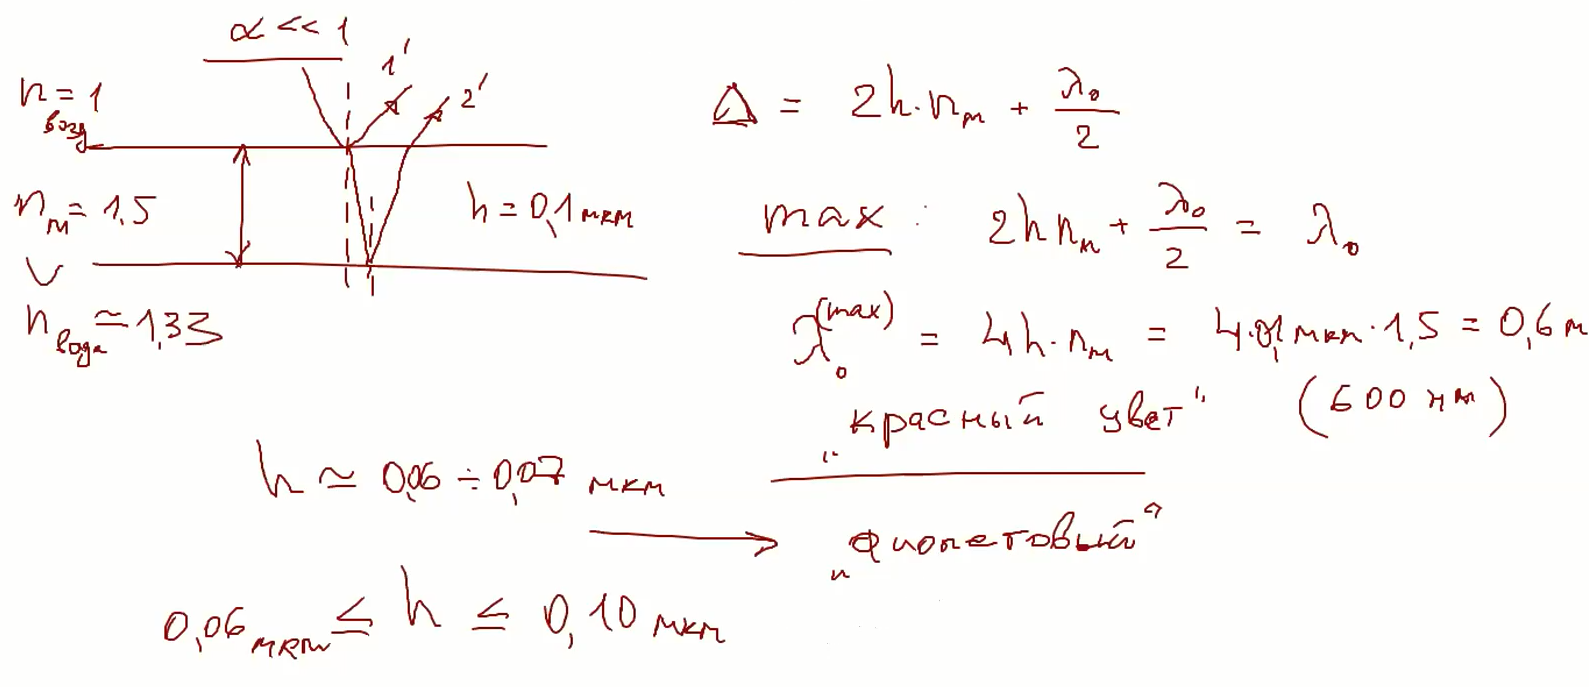 α << 1
1'
2'
n возд = 1
n м = 1,5
h = 0,1 мкм
V
n вода ≃ 1,33
Δ = 2h·n м + λ₀/2
max : 2h n м + λ₀/2 = λ₀
λ₀^(max) = 4h·n м = 4·0,1 мкм·1,5 = 0,6 м
(600 нм)
„красный цвет"
h ≃ 0,06 ÷ 0,07 мкм
„фиолетовый"
0,06 мкм ≤ h ≤ 0,10 мкм